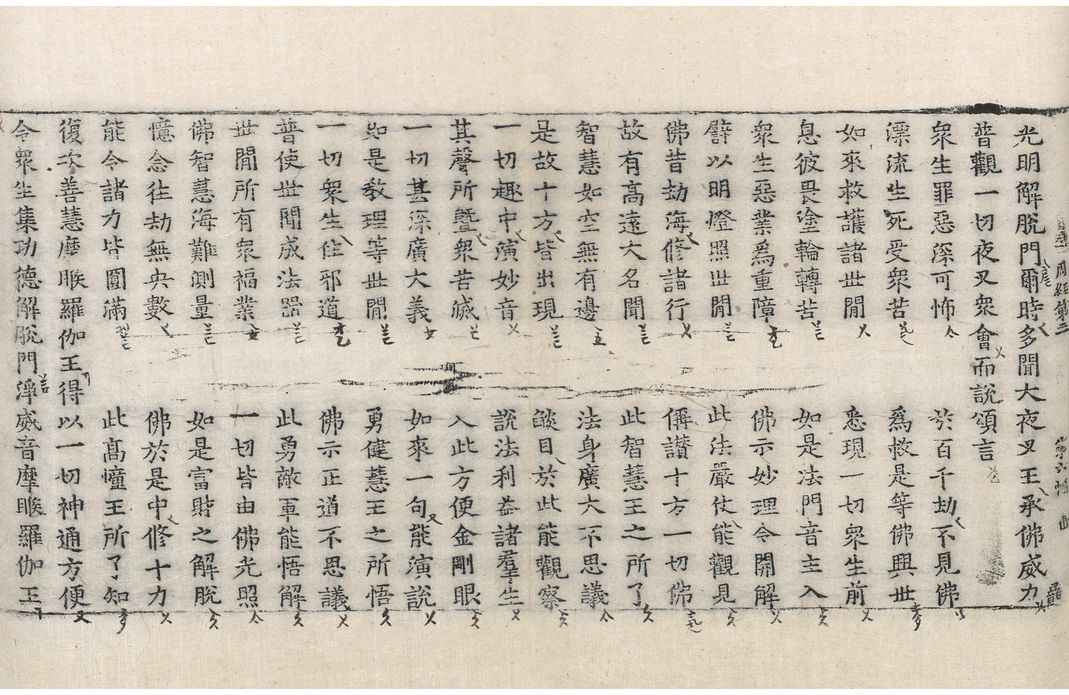 光明解脫門爾時多聞大夜叉王承佛威力
普觀一切夜叉衆會而說頌言
衆生罪惡深可怖　於百千劫不見佛
漂流生死受衆苦　爲救是等佛興世
如來救護諸世閒　悉現一切衆生前
息彼畏塗輪轉苦　如是法門音主入
衆生惡業爲重障　佛示妙理令開解
譬以明燈照世閒　此法嚴仗能觀見
佛昔劫海修諸行　稱讃十方一切佛
故有高遠大名聞　此智慧王之所了
智慧如空無有邊　法身廣大不思議
是故十方皆出現　𦦨目於此能觀察
一切趣中演妙音　說法利益諸羣生
其聲所曁衆苦滅　入此方便金剛眼
一切甚深廣大義　如來一句能演說
如是教理等世閒　勇健慧王之所悟
一切衆生住邪道　佛示正道不思議
普使世閒成法器　此勇敵軍能悟解
世閒所有衆福業　一切皆由佛光照
佛智慧海難測量　如是富財之解脫
憶念往劫無央數　佛於是中修十力
能令諸力皆圓滿　此高幢王所了知
復次善慧摩睺羅伽王得以一切神通方便
令衆生集功德解脫門淨威音摩睺羅伽王
周經第三